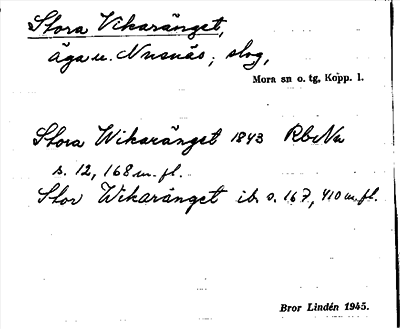 Stora Vikaränget,
äga u. Nusnäs; slog,
Mora sn o. tg, Kopp. l.
Stora Wikaränget 1843 RbNu
s. 12, 168 m. fl.
Stor Wikaränget ib s. 167, 410 m. fl.
Bror Lindén 1945.